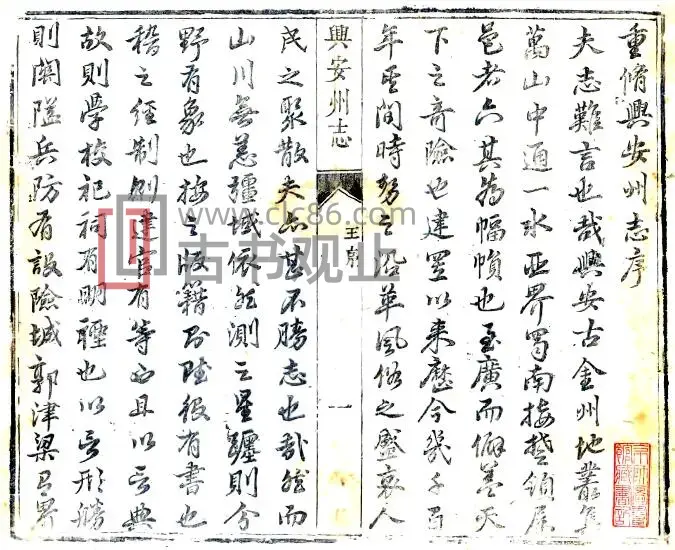 重脩興安州志序
夫志難言也哉興安古金州地叢
萬山中通一水西界蜀南接楚領屬
邑者六其為幅幀也至廣而僻蓋天
下之奇險也建置以來歷今幾千百
年其間時勢之沿革風俗之盛衰人
興安州志
王序
一
民之聚散夫亦甚不勝志也哉然而
山川無恙疆域依然測之星躔則分
野有象也按之版籍有書也
稽之經制則建官有等也且以言典
故則學校祀祠有明禋也以言形勝
則關隘兵防有設險城郭津梁有界
www.clc86.com
古书观止